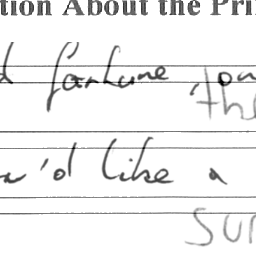 tion About the Pri
d fortune, you
the
u'd like a
sur